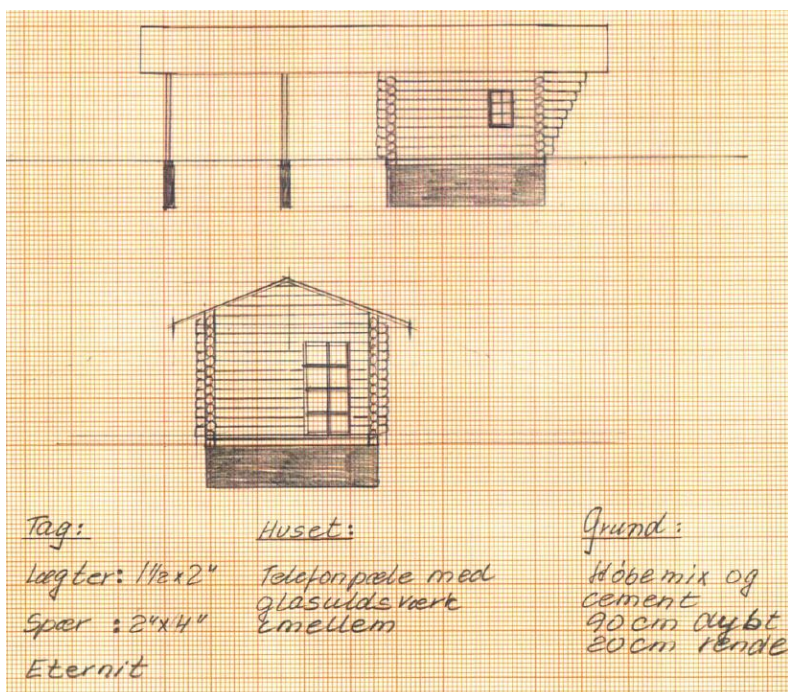 Tag:
Lægter: 1½x2"
Spær : 2"x4"
Eternit
Huset:
Telefonpæle med
glasuldsværk
imellem
Grund:
Støbemix og
cement
90 cm dybt
20 cm rende